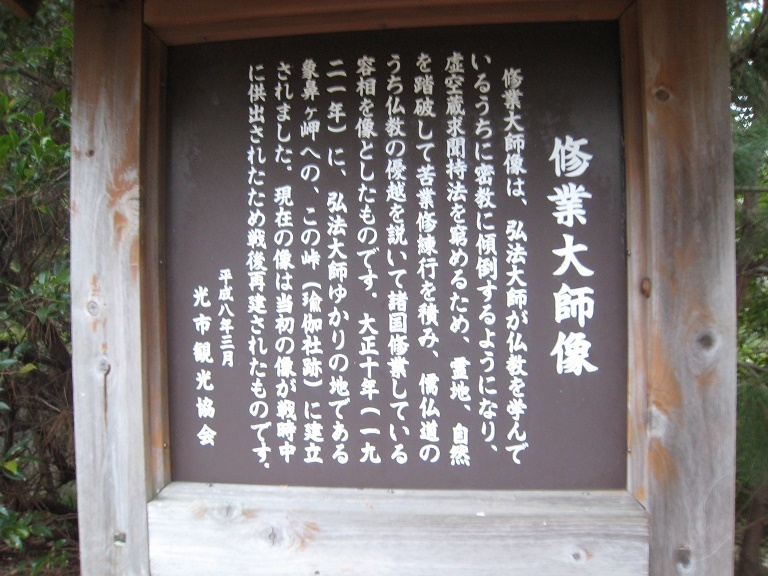 修業大師像
修業大師像は、弘法大師が仏教を学んで
いるうちに密教に傾倒するようになり、
虚空蔵求聞持法を窮めるため、霊地、自然
を踏破して苦業修練行を積み、儒仏道の
うち仏教の優越を説いて諸国修業している
容相を像としたものです。大正十年（一九
二一年）に、弘法大師ゆかりの地である
象鼻ヶ岬への、この峠（瑜伽社跡）に建立
されました。現在の像は当初の像が戦時中
に供出されたため戦後再建されたものです.
平成八年三月
光市観光協会